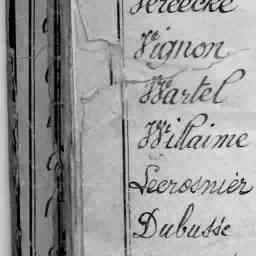 Vereecke
Vignon
Wartel
Willaime
Lecrosnier
Dubussé